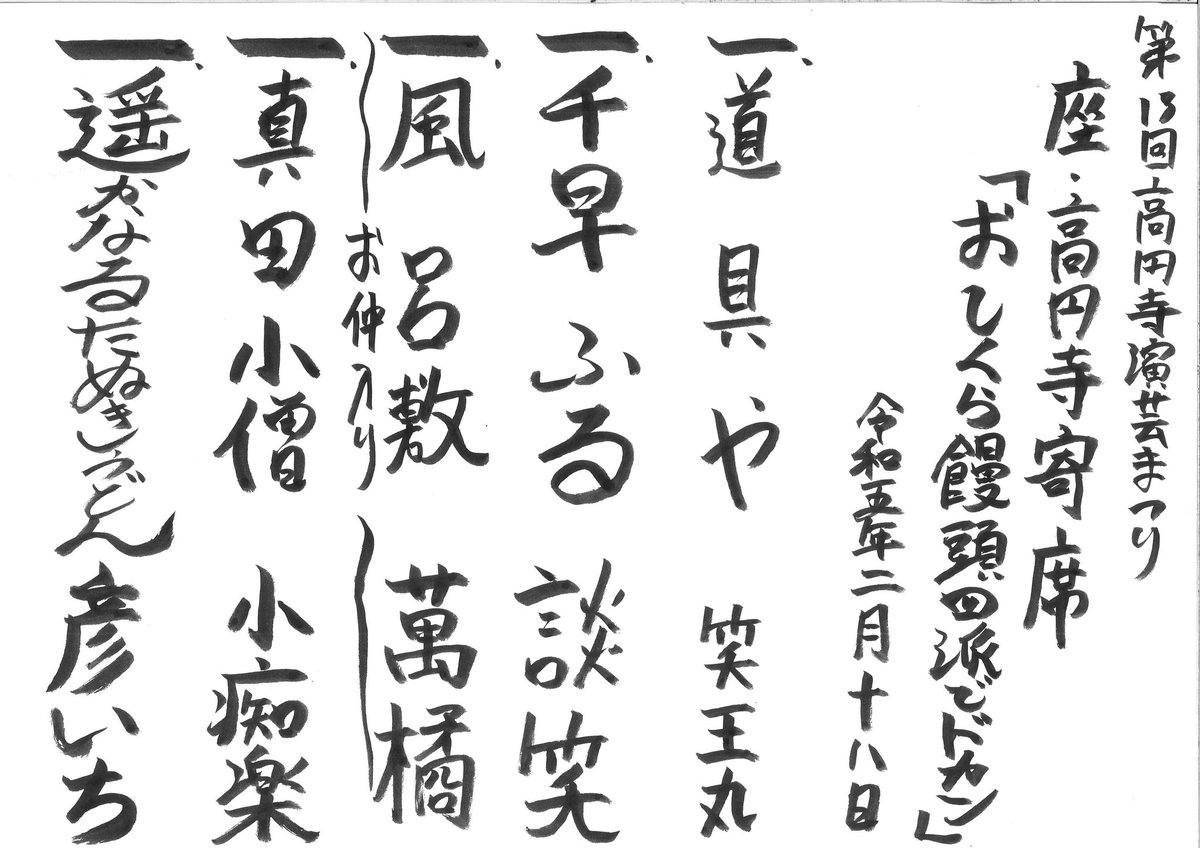 第13回高円寺演芸まつり
座・高円寺寄席
「おしくら饅頭四派でドカン」
令和五年二月十八日
一、道具や 笑王丸
一、千早ふる 談笑
一、風呂敷 萬橘
お仲入り
一、真田小僧 小痴楽
一、遥かなるたぬきうどん 彦いち